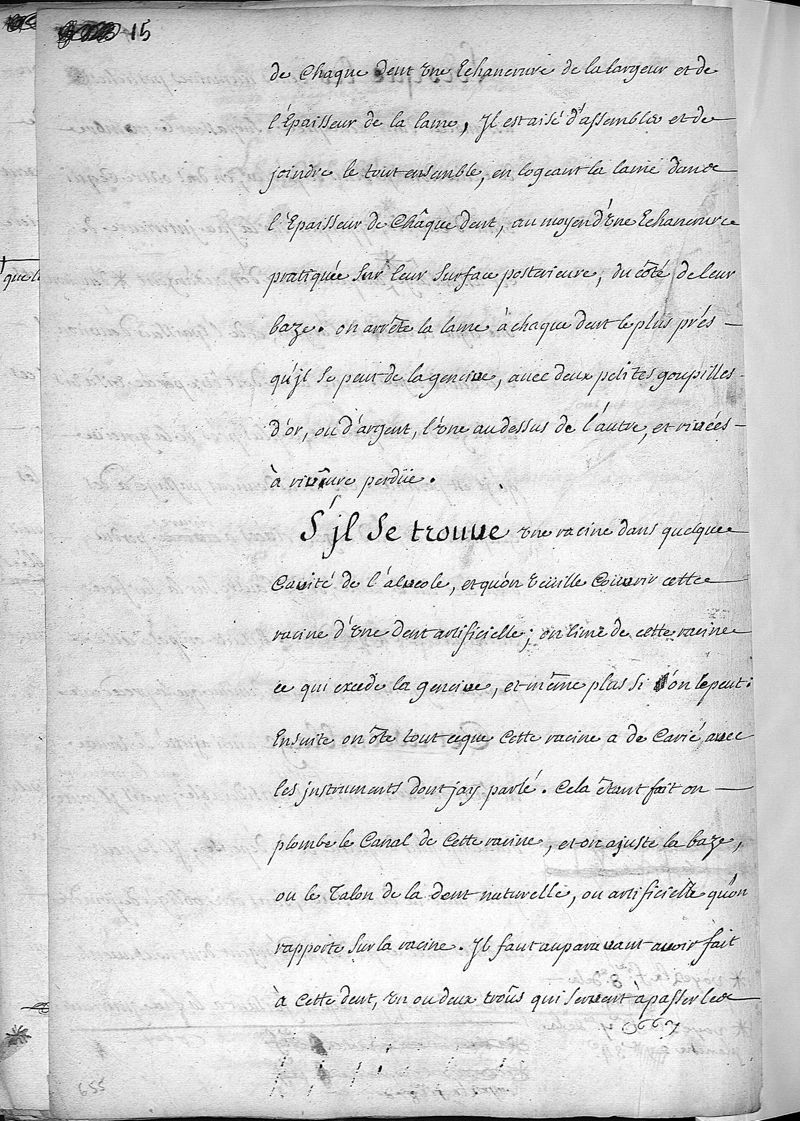 15
de Chaque dent une Echancrure de la largeur et de
l'Epaisseur de la lame, Il est aisé d'assembler et de
joindre le tout ensemble, en logeant la lame dans
l'Epaisseur de Châque dent, au moyen d'une Echancrure
pratiquée Sur leur Surface posterieure, du côté de leur
baze. on arrête la lame à chaque dent le plus prés —
qu'jl se peut de la gencive, avec deux petites goupilles -
d'or, ou d'argent, l'une au dessus de l'autre, et rivées -
à rivûre perdüe.
S'jl Se trouve une racine dans quelque
Cavité de l'alveole, et qu'on veüille Couvrir cette
racine d'une dent artificielle; on lime de cette racine
ce qui excede la gencive, et même plus si l'on le peut.
Ensuite on ôte tout ceque Cette racine a de Carié, avec
les jnstruments dont jay parlé. Cela êtant fait on —
plombe le Canal de Cette racine, et on ajuste la baze,
ou le Talon de la dent naturelle, ou artificielle qu'on
rapporte Sur la racine. Il faut auparavant avoir fait
à Cette dent, un ou deux troûs qui servent a passer les
655